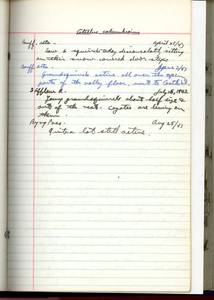 Citellus columbianus
April 25/43
Saw 6 squirrels today discon solately sitting
on their snow covered door steps
June 2/43
Ground squirrels active all over the open
parts of the valley floor, went to Castle
July 15, 1943
Young ground squirrels about half size &
out of the nest. Coyotes are living on
them.
Pass. Aug 25/43
Quite a lot still active.